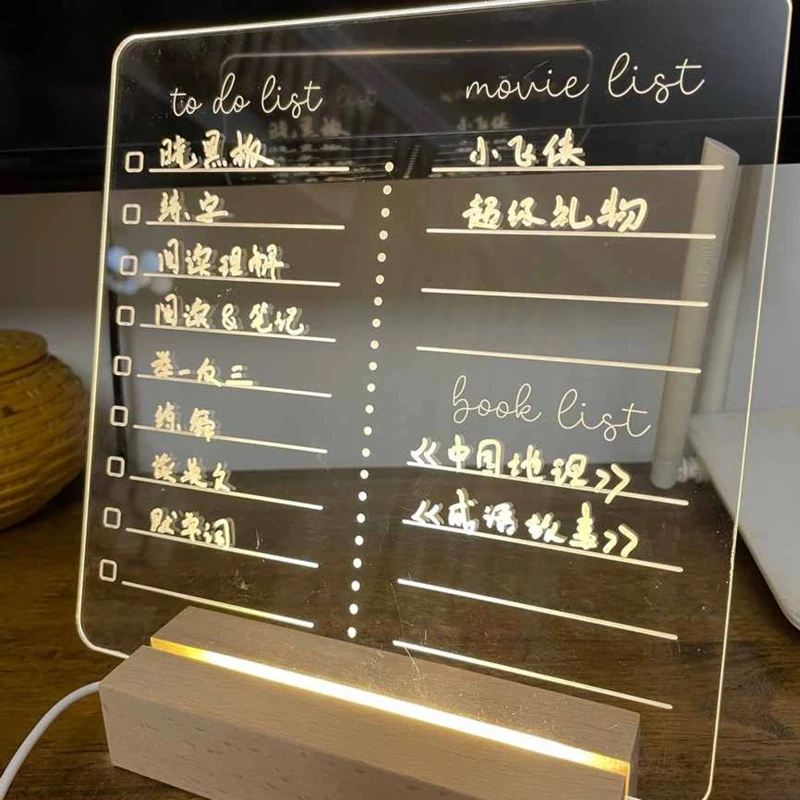 to do list
晓黑板
练字
阅读理解
阅读 & 笔记
举一反三
练舞
读英文
默单词
movie list
小飞侠
超级礼物
book list
《中国地理》
《成语故事》